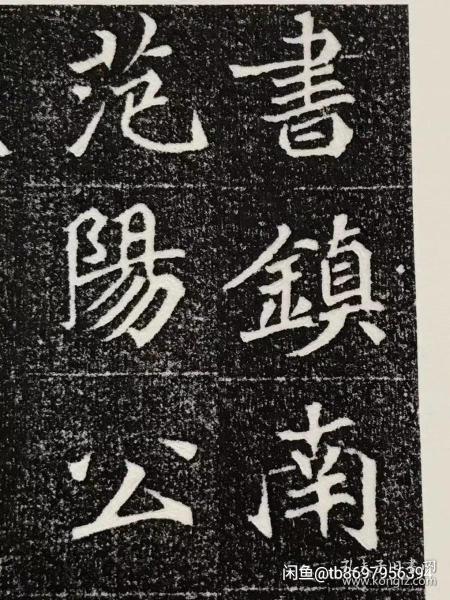 書鎮南
范陽公
闲鱼@tb8697956394
www.kongfz.com